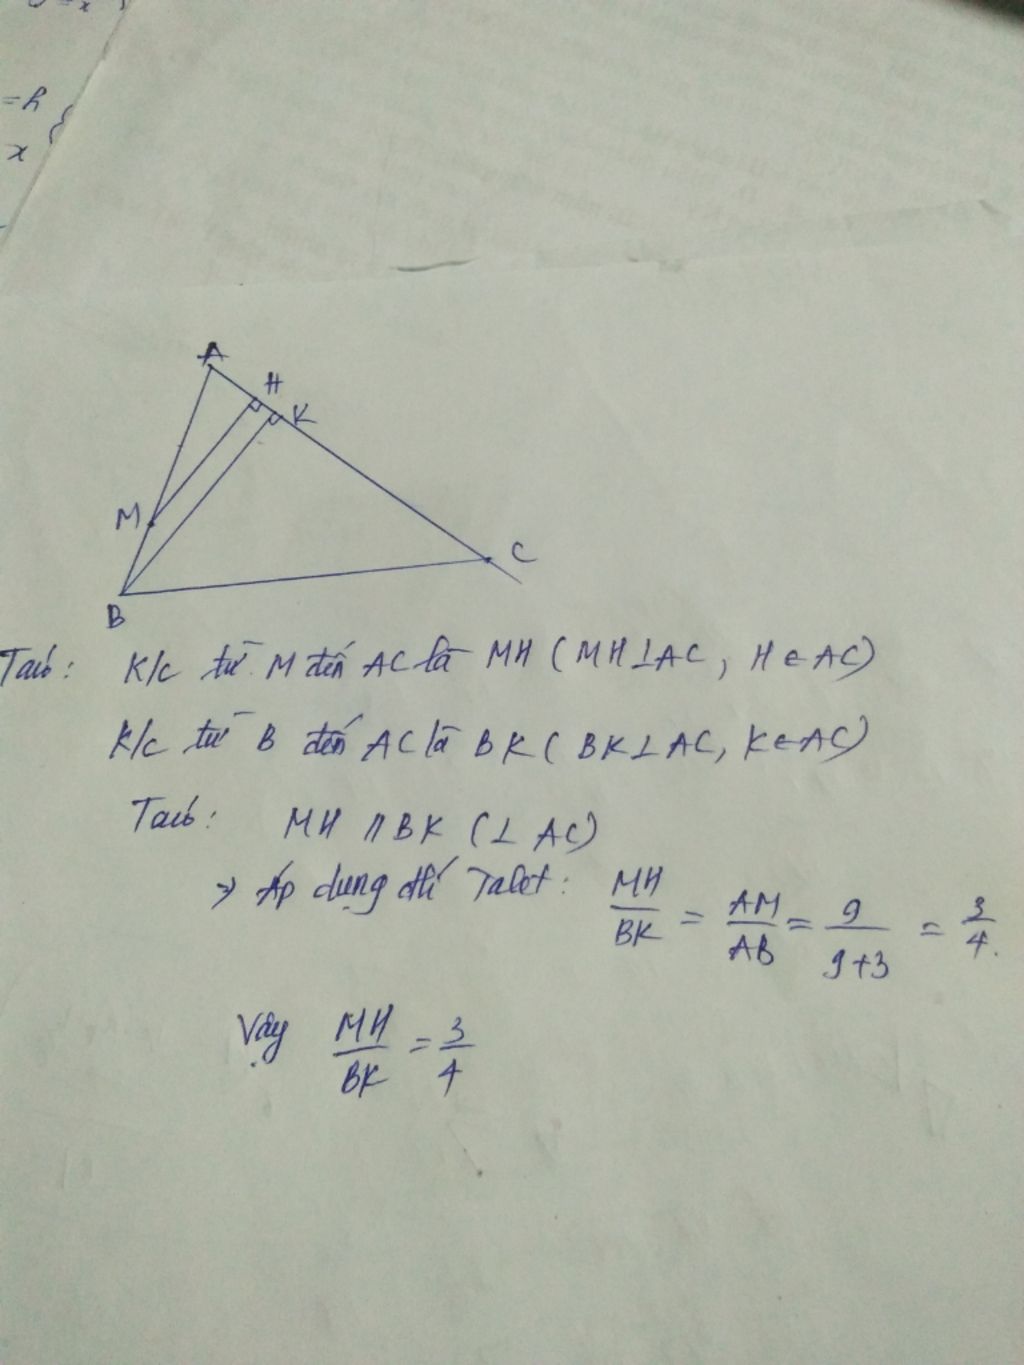 =h
x
A
H
K
M
C
B
Ta có: K/c từ M đến AC là MH (MH⊥AC, H∈AC)
K/c từ B đến AC là BK (BK⊥AC, K∈AC)
Ta có: MH // BK (⊥ AC)
=> Áp dụng đlí Talet: MH/BK = AM/AB = 9/9+3 = 3/4.
Vậy MH/BK = 3/4